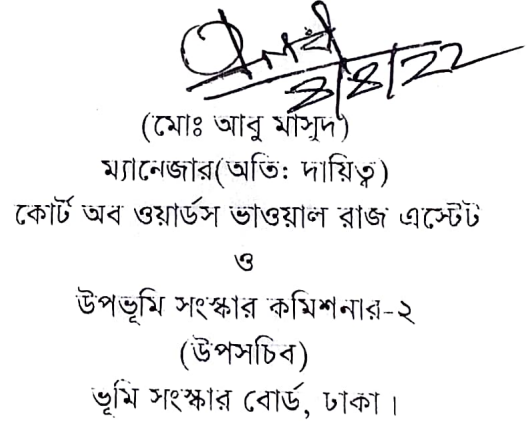 ৪/৪/২২
(মোঃ আবু মাসুদ)
ম্যানেজার(অতি: দায়িত্ব)
কোর্ট অব ওয়ার্ডস ভাওয়াল রাজ এস্টেট
ও
উপভূমি সংস্কার কমিশনার-২
(উপসচিব)
ভূমি সংস্কার বোর্ড, ঢাকা।